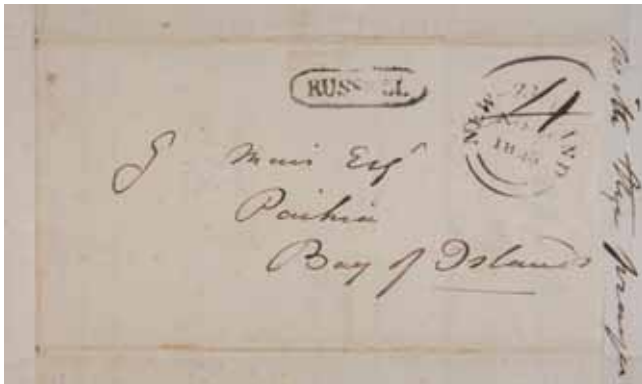 RUSSELL
NEW ZEALAND
4
1845
G Mair Esqr
Paihia
Bay of Islands